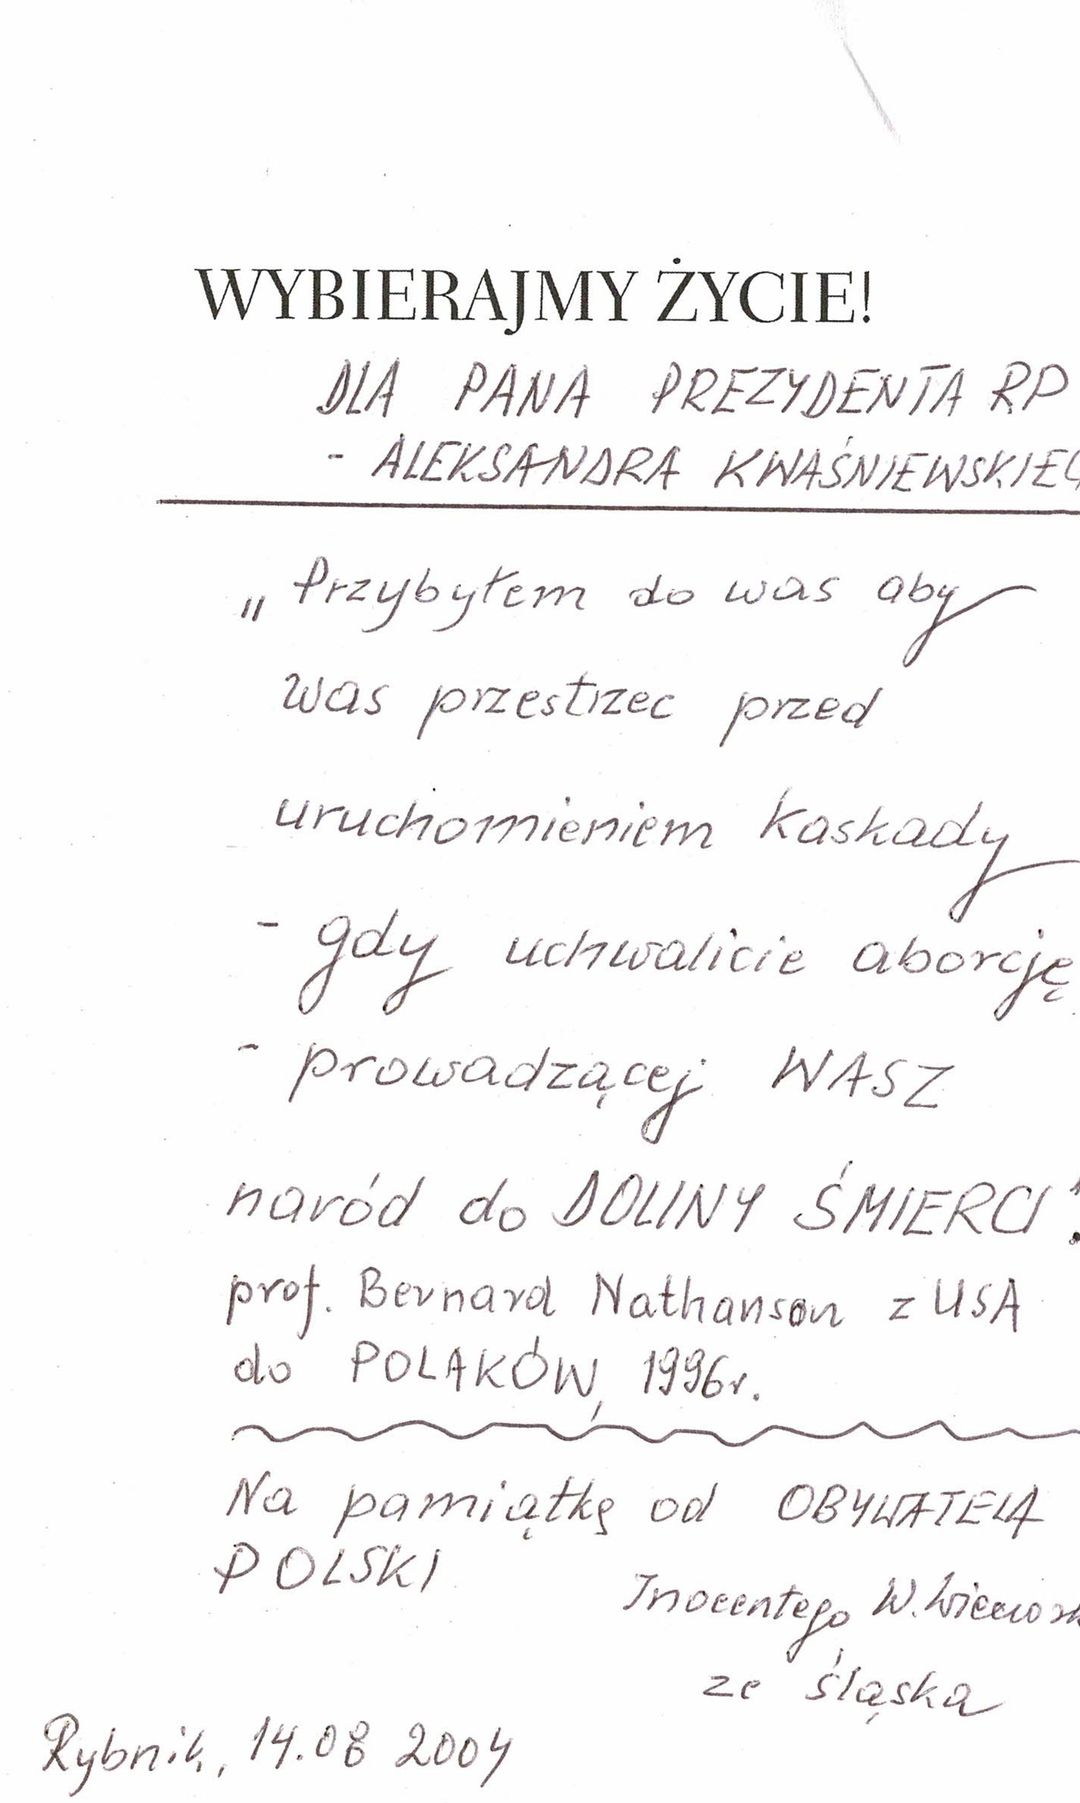 WYBIERAJMY ŻYCIE!
DLA PANA PREZYDENTA RP
- ALEKSANDRA KWAŚNIEWSKIEG
„Przybyłem do was aby
was przestrzec przed
uruchomieniem kaskady
- gdy uchwalicie aborcję
- prowadzącej WASZ
naród do DOLINY ŚMIERCI".
prof. Bernard Nathanson z USA
do POLAKÓW, 1996r.
Na pamiątkę od OBYWATELA
POLSKI
Inocentego W.
ze śląska
Rybnik, 14.08 2004